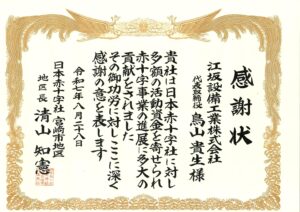 感謝状
江坂設備工業株式会社
代表取締役 鳥山貴生様
貴社は日本赤十字社に対し
多額の活動資金を寄せられ
赤十字事業の進展に多大の
貢献をされました
その御功労に対しここに深く
感謝の意を表します
令和七年八月二十八日
日本赤十字社宮崎市地区
地区長 清山知憲